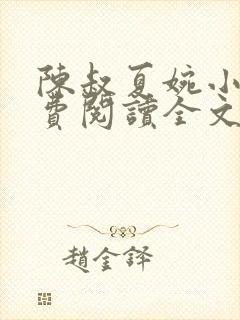 陳叔夏婉小
費閱讀全文
趙金鐸